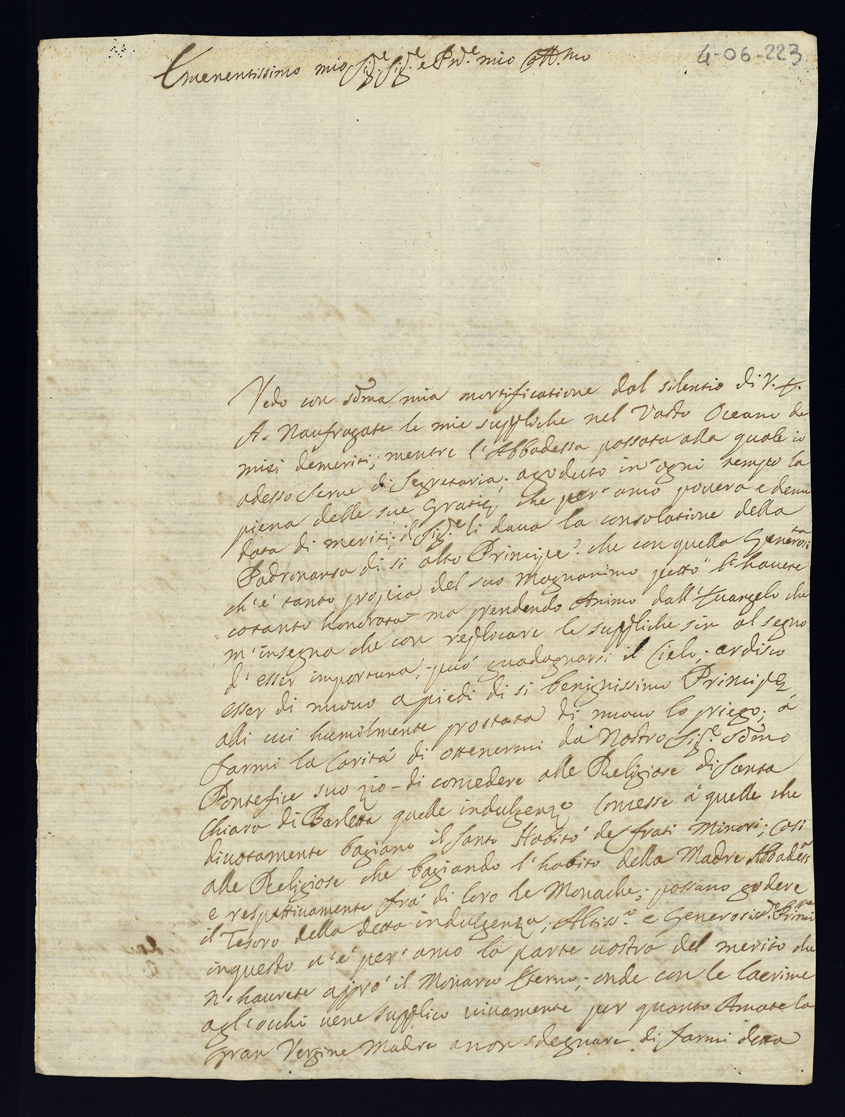 4-06-223
Emenentissimo mio Sig.re Sig.re e P.ne mio Oss.mo
Vedo con som̃a mia mortificatione dal silentio di V. E.
A. Naufragate le mie suppliche nel Vasto Oceano de
miei demeriti; mentre l'Abbadessa passata alla quale io
adesso servo di Segretaria, à goduto in ogni tempo la
piena delle sue Gratie, che per amo povera e denu
data di meriti; il Sig.re li dava la consolatione della
Padronanza di si alto Principe. che con quella Generosi.ta
ch'è tanto propia del suo magnanimo petto l'havete
cotanto honorata ma prendendo Animo dall'Evangelo che
m'insegna che con replicare le suppliche sin al segno
d'esser importuna, può guadagnarsi il Cielo, ardisco
esser di nuovo a piedi di si benignissimo Principe
alli cui humilmente prostata di nuovo lo priego, à
farmi la Carità di ottenermi da Nostro Sig.re Som̃o
Pontefice suo zio di concedere alle Religiose di Santa
Chiara di Barletta quelle indulgenze Concesse à quelle che
divotamente bagiano il Santo Habito de frati Minori; così
alle Religiose che bagiando l'habito della Madre Abbadess
e respettivamente frà di loro le Monache, possano godere
il Tesoro della detta indulgenza, Altiss.o e Generosis.mo Princi
inquesto v'è per amo la parte vostra del merito che
n'haurete appò il Monarca Eterno, onde con le lacrime
agl'occhi vene supplico vivamente per quanto Amate la
gran Vergine Madre a non sdegnare di farmi detta